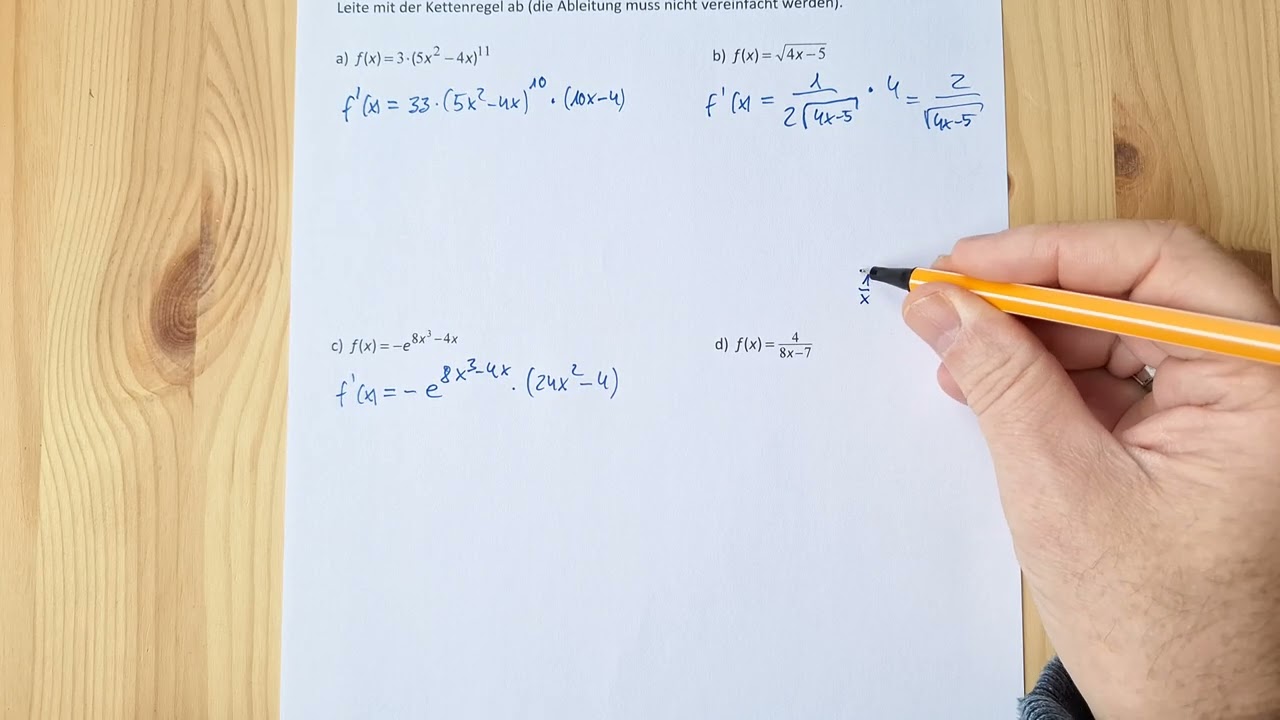 Leite mit der Kettenregel ab (die Ableitung muss nicht vereinfacht werden).
a) f(x)=3·(5x²−4x)¹¹
f'(x) = 33·(5x²−4x)¹⁰·(10x−4)
b) f(x)=√(4x−5)
f'(x) = 1/(2√(4x−5)) · 4 = 2/√(4x−5)
1/x
c) f(x)=−e^(8x³−4x)
f'(x) = −e^(8x³−4x)·(24x²−4)
d) f(x)=4/(8x−7)